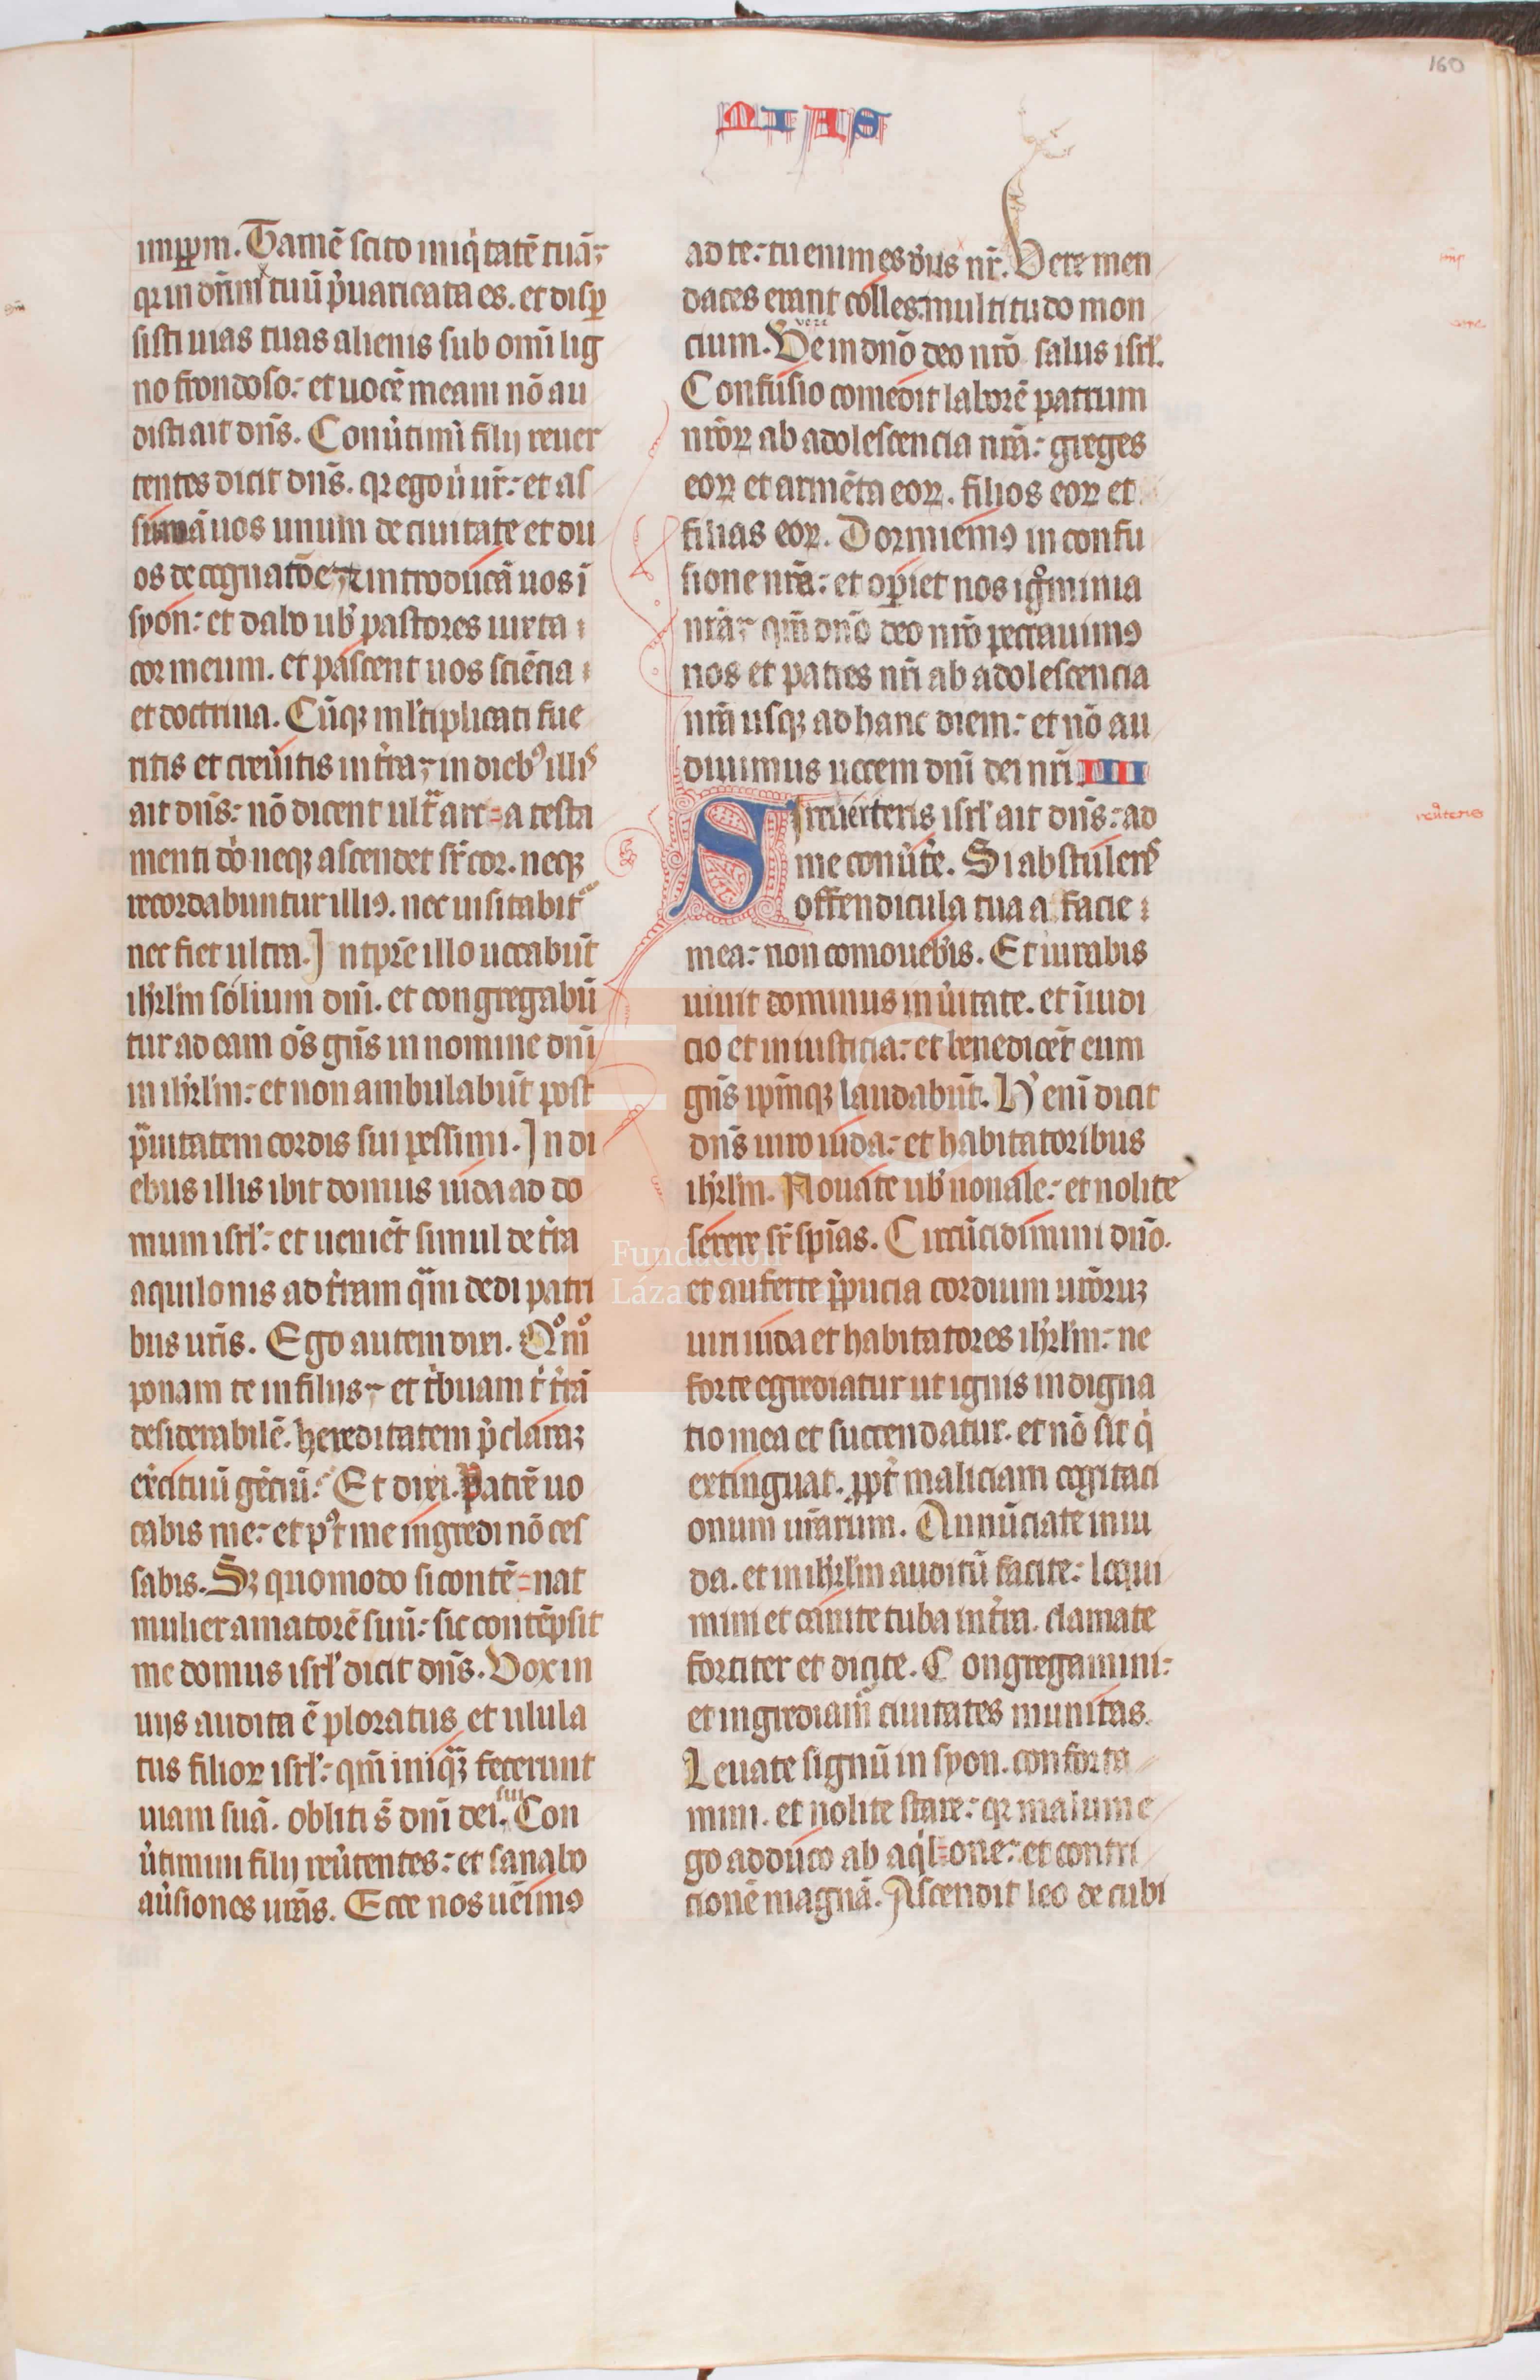 160
MIAS
imppm. Tamē scito iniq̇tatē tuā;
qr in dn̄m tuū p̄uaricata es. et disꝑ
sisti uias tuas alienis sub omī lig
no frondoso: et uocē meam nō au
disti ait dn̄s. Conũtimī filij reuer
tentes dicit dn̄s. qr ego uir ur̄: et as
sumā uos unum de ciuitate et du
os de cognatōe et introducā uos ī
syon: et dabo ub' pastores iuxta
cor meum. et pascent uos sciēcia
et doctrina. Cūqꝫ ml'tiplicati fue
ritis et creũitis in tr̄a; in dieb⁹ illis
ait dn̄s: nō dicent ultᵃ arc=a testa
menti dn̄i neqꝫ ascendet sr̄ cor. neqꝫ
recordabuntur illi⁹. nec uisitabit᷑
nec fiet ultra. In tp̄re illo uocabūt
ihrl'm solium dn̄i. et congregabū
tur ad eam om̄s gn̄s in nomine dn̄i
in ihrl'm: et non ambulabūt post
pᵃuitatem cordis sui pessimi. In di
ebus illis ibit domus iuda ad do
mum isrl': et ueniēt simul de tr̄a
aquilonis ad tr̄am qᵃm dedi patri
bus ur̄is. Ego autem dixi. Qᵒmᵒ
ponam te in filijs; et tᵢbuam t' tr̄ā
desiderabilē. hereditatem p̄claraꝫ
exercituū gēciū. Et dixi. Patrē uo
cabis me: et pꝰt me ingredi nō ces
sabis. Sꝫ quomodo si contē=nat
mulier amatorē suū: sic contēpsit
me domus isrl' dicit dn̄s. Vox in
uijs audita ē ploratus et ulula
tus filioꝝ isrl': qm̄ iniqᵃꝫ fecerunt
uiam suā. obliti s̄ dn̄i dei. Con
sui
ũtimini filij reũtentes: et sanabo
aũsiones ur̄as. Ecce nos uēim⁹
ad te: tu enim es dn̄s nr̄. Vere men
daces erant colles: multitudo mon
vere
cium. Ve in dn̄o deo nr̄o salus isrl'.
Confusio comedit laborē patrum
nr̄oꝝ ab adolescencia nr̄a: greges
eoꝝ et armēta eoꝝ. filios eoꝝ et
filias eoꝝ. Dormiem⁹ in confu
sione nr̄a: et oꝑiet nos igᵒminia
nr̄a; qm̄ dn̄o deo nr̄o peccauim⁹
nos et patres nr̄i ab adolescencia
nr̄a usqꝫ ad hanc diem: et nō au
diuimus uocem dn̄i dei nr̄i IIII
Si reuerteris isrl' ait dn̄s: ad
me conũte. Si abstuleris
offendicula tua a facie
mea: non comouebis. Et iurabis
uiuit dominus in ũitate. et ī iudi
cio et in iusticia: et benedicēt eum
gn̄s ip̄mqꝫ laudabūt. H' enī dicit
dn̄s uiro iuda: et habitatoribus
ihrl'm. Nouate ub' nouale: et nolite
serere sr̄ spīas. Circūcidimini dn̄o.
et auferte p̄pucia cordium ur̄oruꝫ
uiri iuda et habitatores ihrl'm: ne
forte egrediatur ut ignis indigna
tio mea et succendatur. et nō sit q̇
extinguat. ꝓpt' maliciam cogitaci
onum ur̄arum. Annūciate in iu
da. et in ihrl'm auditū facite: loqui
mini et canite tuba in tr̄a. clamate
fortiter et dicite. Congregamini:
et ingrediamr̄ ciuitates munitas.
Leuate signū in syon. conforta
mini. et nolite stare: qr malum e
go adduco ab aq̇l=one: et contri
cionē magnā. Ascendit leo de cubi
reũteris
Fundación
Lázaro